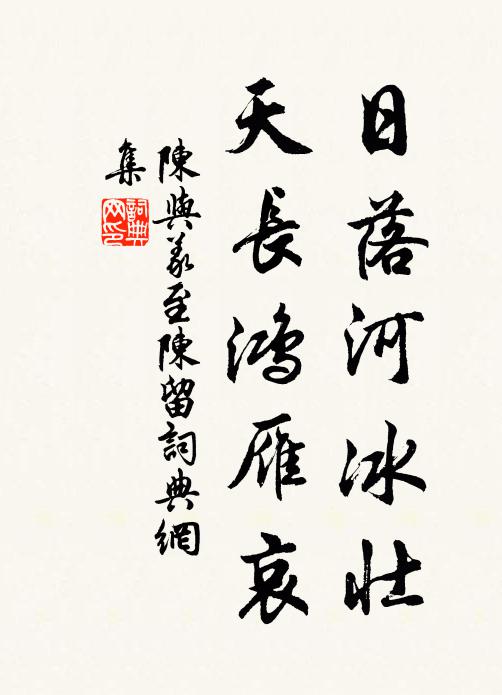 日落河冰壯
天長鴻雁哀
陳與義至陳留詞典網
集
詞典網印